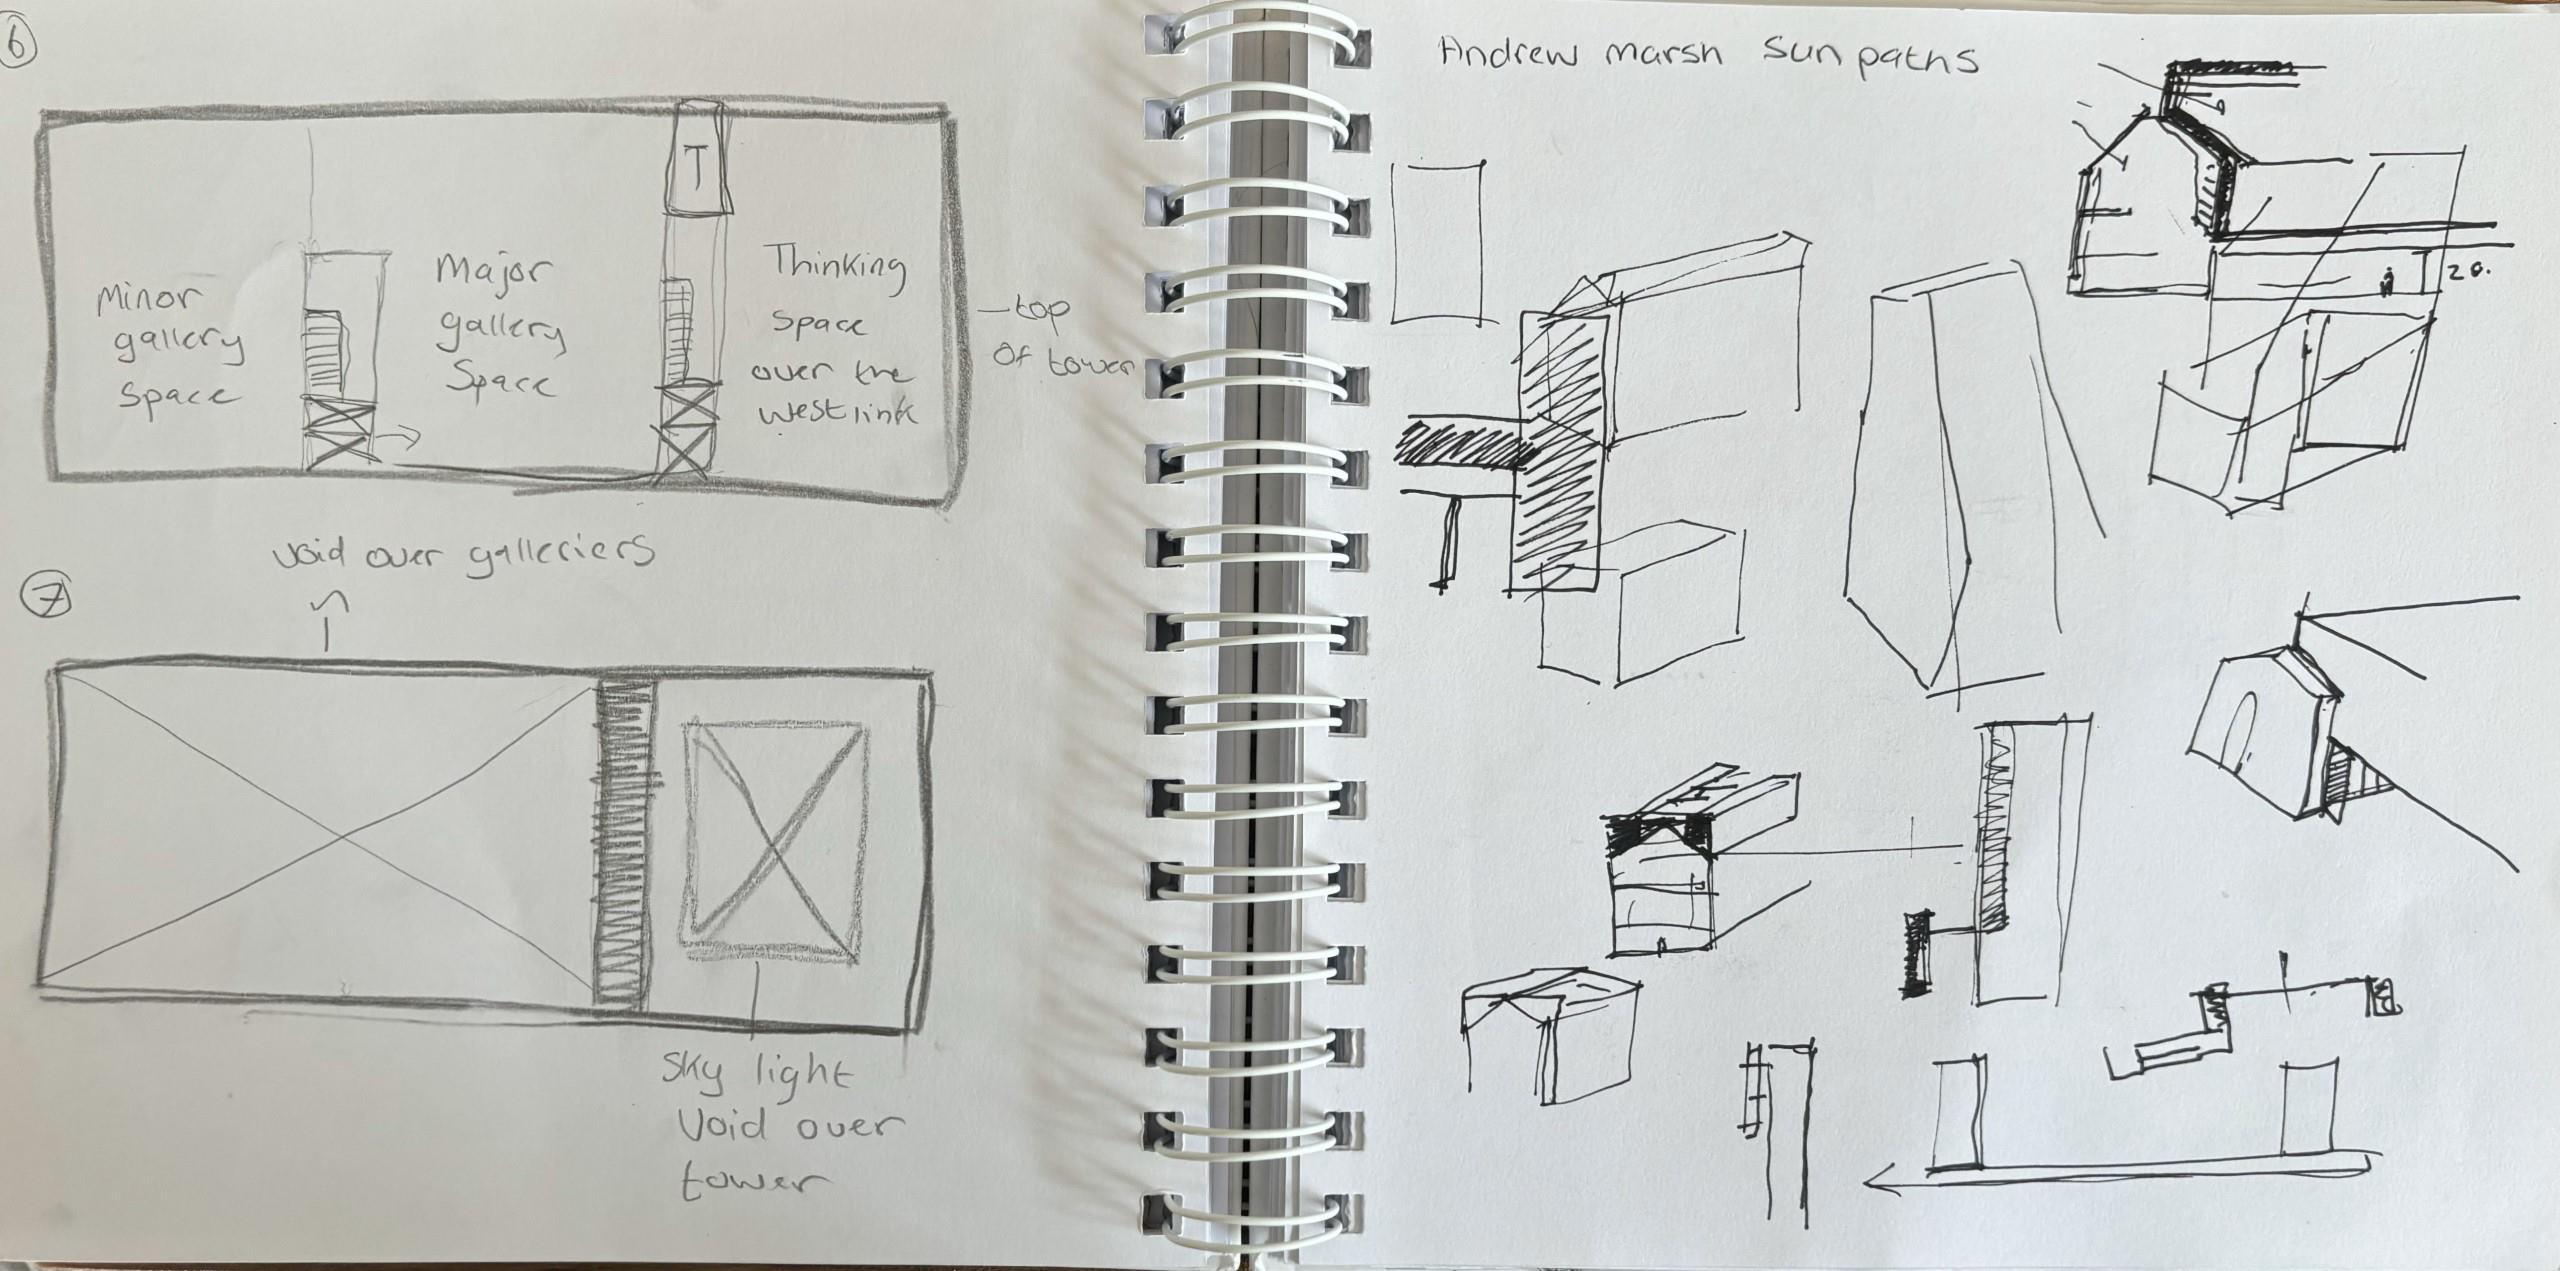 6
T
Minor
gallery
Space
Major
gallery
Space
Thinking
Space
over the
westlink
top
of tower
void over galleriers
7
Sky light
Void over
tower
Andrew marsh Sun paths